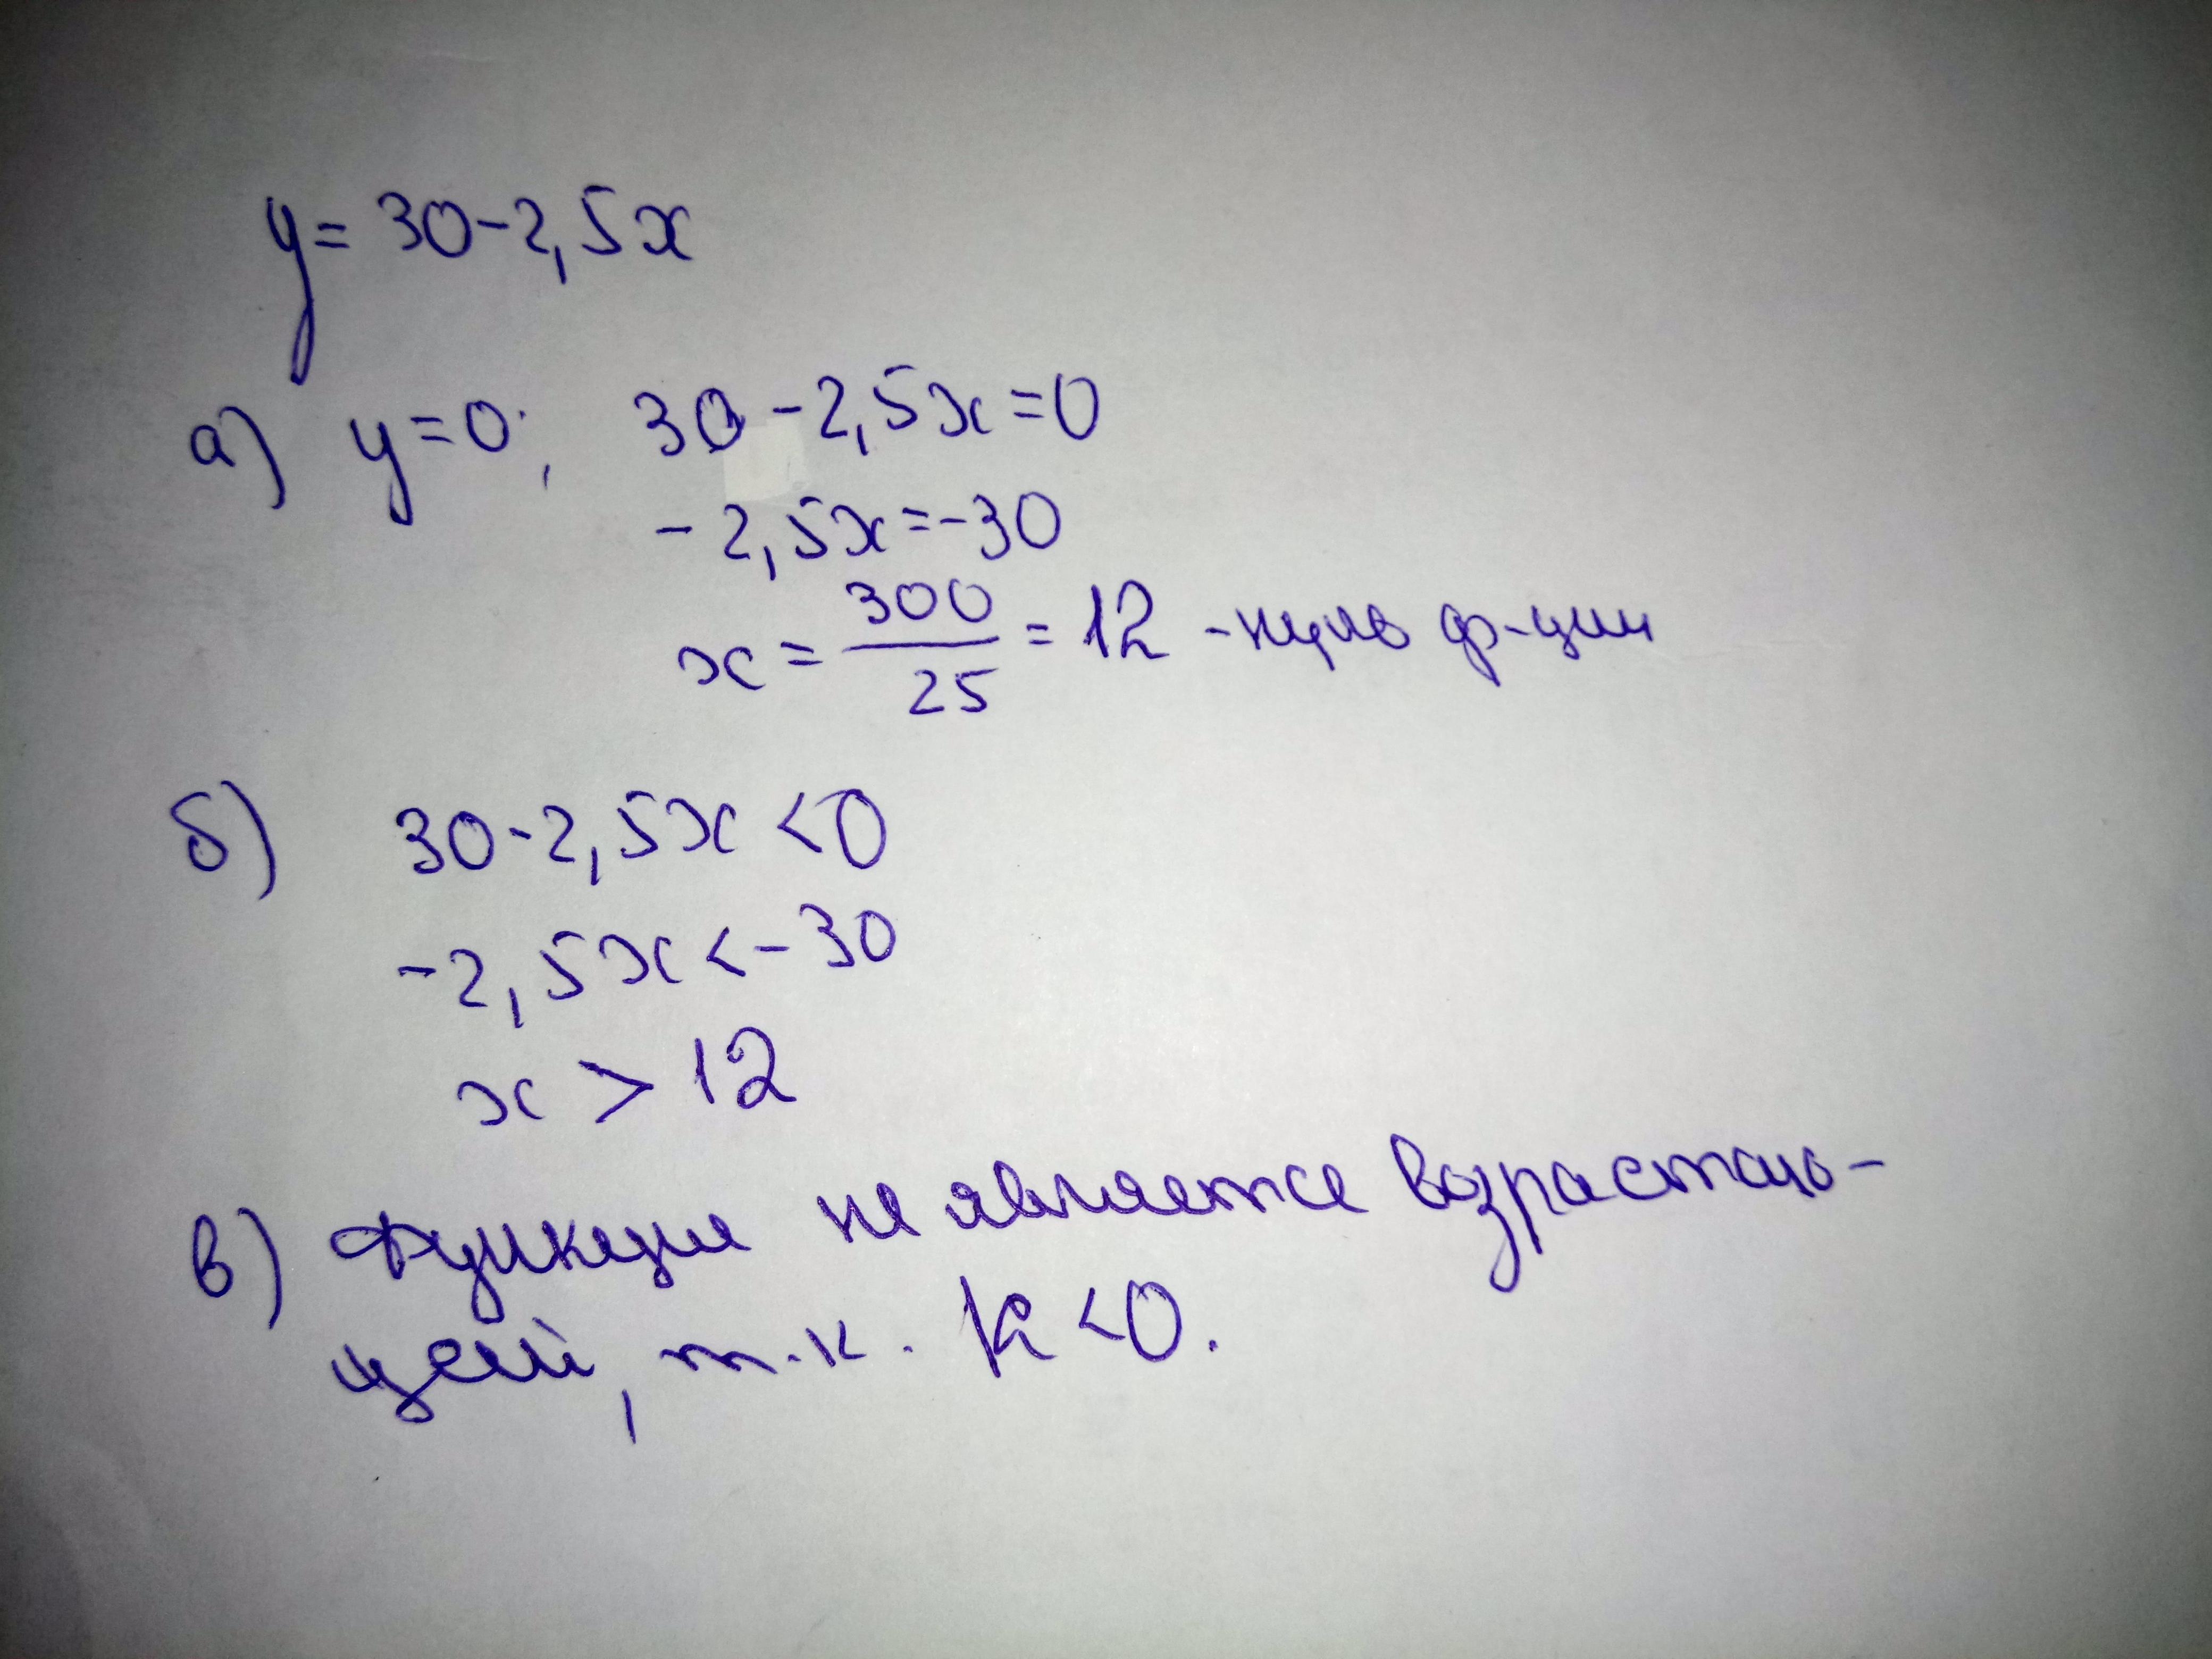 y = 30 - 2,5x
а) y = 0; 30 - 2,5x = 0
- 2,5x = - 30
x = 300/25 = 12 - нуль ф-ции
б) 30 - 2,5x < 0
- 2,5x < - 30
x > 12
в) Функция не является возрастаю-
щей, т.к. k < 0.